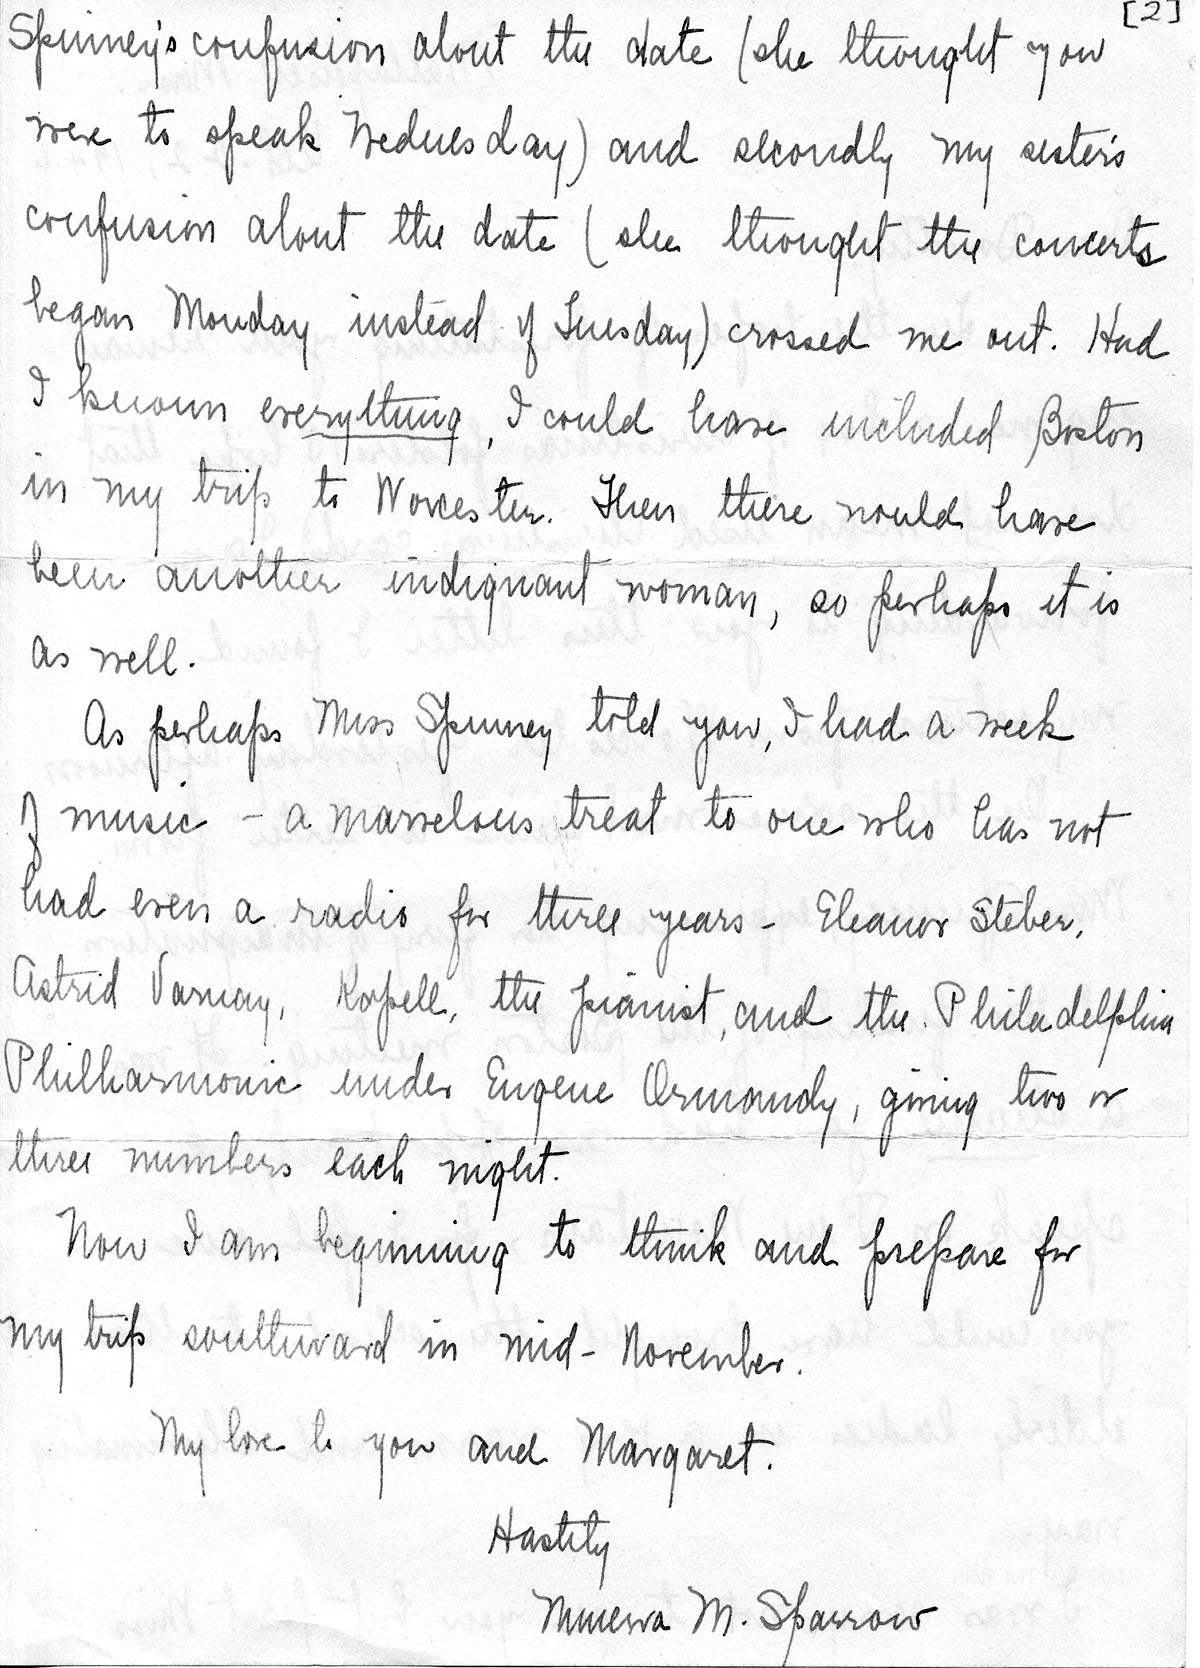 [2]
Spinney's confusion about the date (she thought you
were to speak Wednesday) and secondly my sister's
confusion about the date (she thought the concerts
began Monday instead of Tuesday) crossed me out. Had
I known everything, I could have included Boston
in my trip to Worcester. Then there would have
been another indignant woman, so perhaps it is
as well.
As perhaps Miss Spinney told you, I had a week
of music - a marvelous treat to one who has not
had even a radio for three years - Eleanor Steber,
Astrid Varnay, Kapell, the pianist, and the Philadelphia
Philharmonic under Eugene Ormandy, giving two or
three numbers each night.
Now I am beginning to think and prepare for
my trip southward in mid-November.
My love to you and Margaret.
Hastily
Minerva M. Sparrow